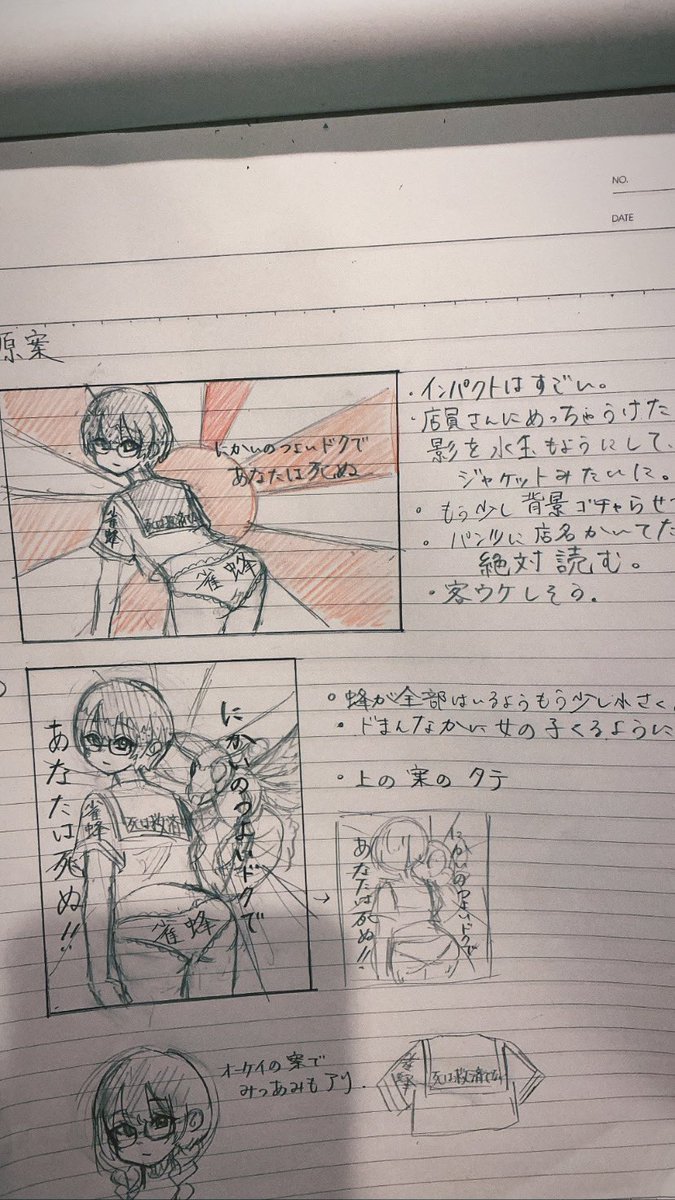 NO.
DATE
原案
・インパクトはすごい。
・店員さんにめっちゃうけた
影を水玉もようにして、
ジャケットみたいに。
・もう少し背景ゴチャらせ
・パンツに店名かいてた
絶対読む。
・客ウケしそう.
にかいのつよいドクで
あなたは死ぬ
雀蜂
死は救済
雀蜂
・蜂が全部はいるようもう少し小さく
・ドまんなかに女の子くるように
・上の案のタテ
にかいのつよいドクで
あなたは死ぬ!!
雀蜂
死は救済
雀蜂
→
にかいのつよいドクで
あなたは死ぬ!!
オーケイの案で
みつあみもアリ.
雀蜂
死は救済